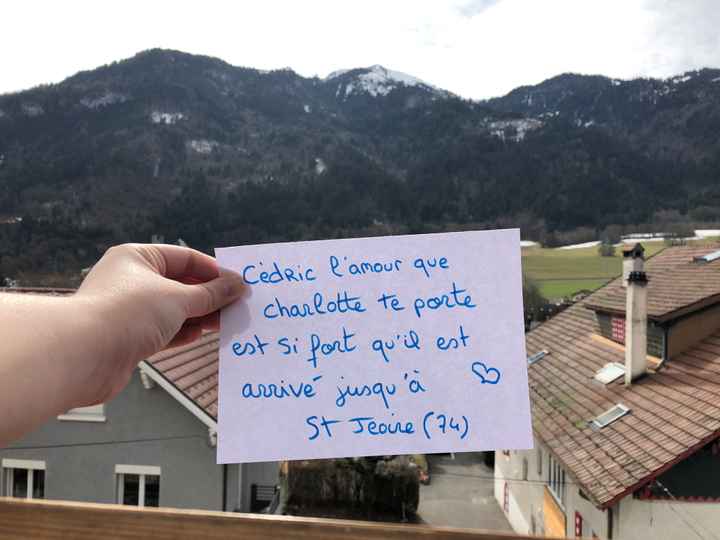 Cédric l'amour que
charlotte te porte
est si fort qu'il est
arrivé jusqu'à
St Jeoire (74)